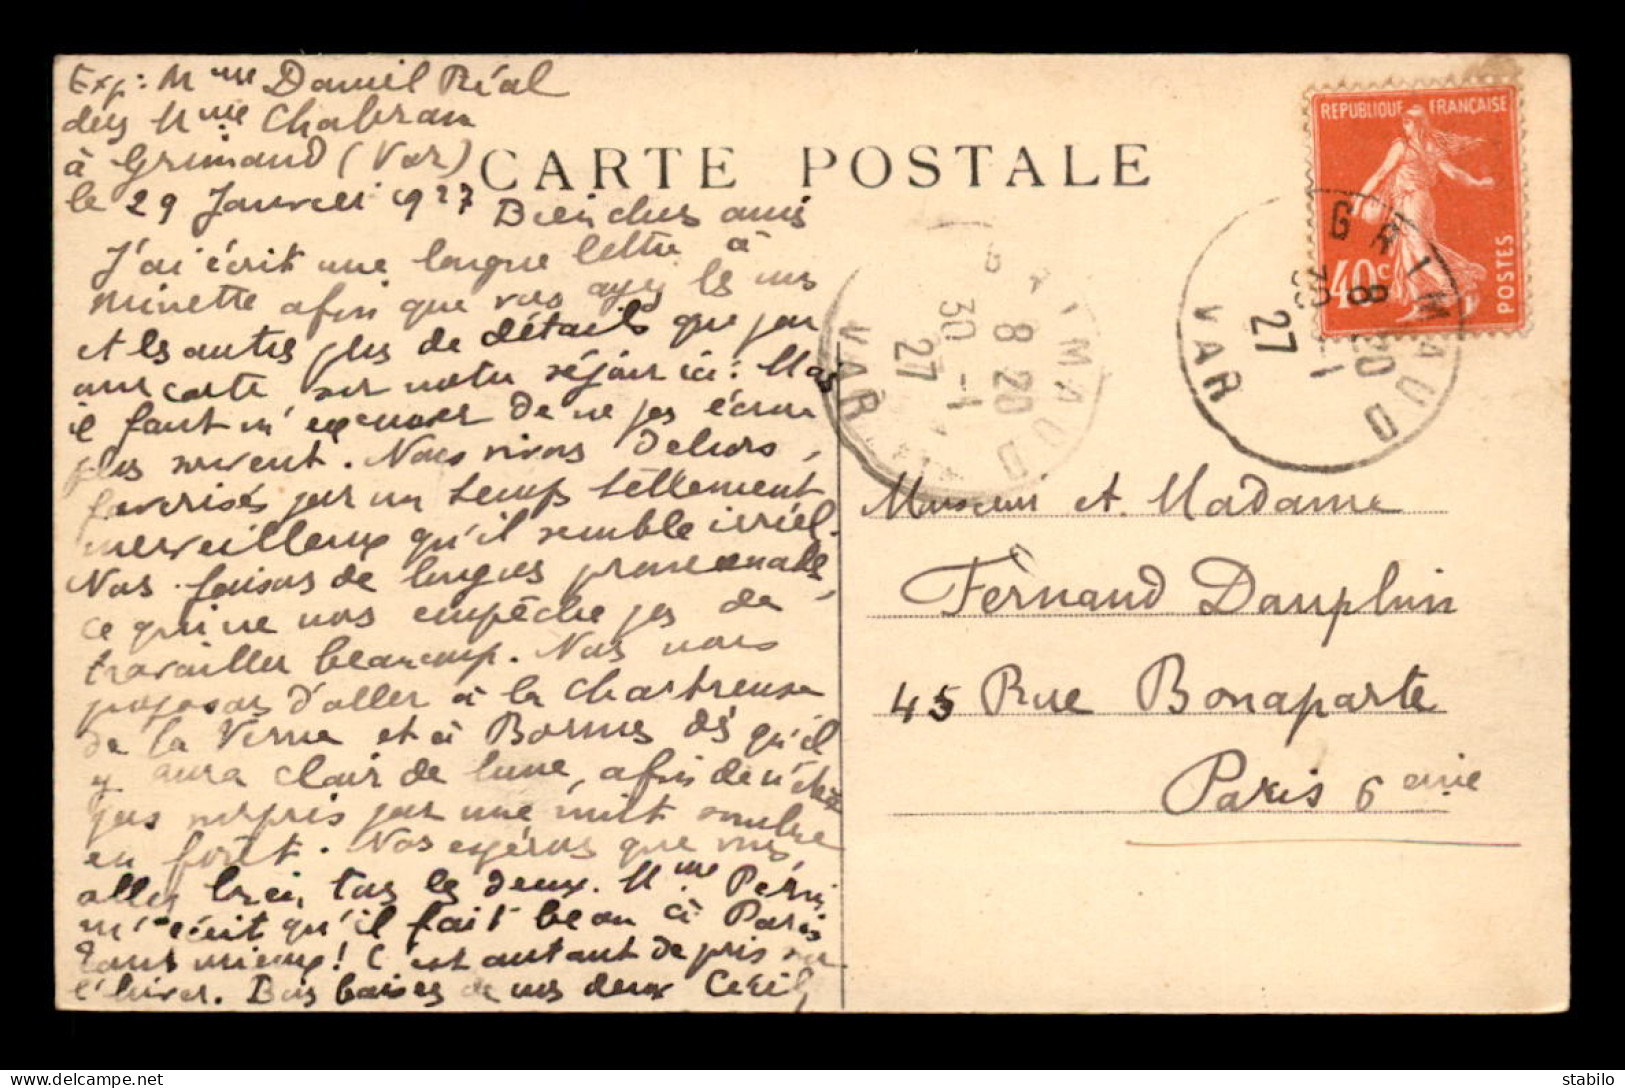 Exp: Mme Daniel Réal
chez Mme Chabran
à Grimaud (Var)
le 29 Janvier 1927
CARTE POSTALE
Bien chers amis
J'ai écrit une longue lettre à
Minette afin que vous ayez les uns
et les autres plus de détails que par
une carte sur notre séjour ici. Mais
il faut m'excuser de ne pas écrire
plus souvent. Nous vivons dehors,
favorisés par un temps tellement
merveilleux qu'il semble irréel.
Nous faisons de longues promenades,
ce qui ne nous empêche pas de
travailler beaucoup. Nous nous
proposons d'aller à la Chartreuse
de la Verne et à Bormes dès qu'il
y aura clair de lune, afin de n'être
pas surpris par une nuit sombre
en forêt. Nous espérons que vous
allez bien tous les deux. Mme Périn
m'écrit qu'il fait beau à Paris
Tant mieux! C'est autant de pris sur
l'hiver. Bons baisers de nous deux Cécile
REPUBLIQUE FRANÇAISE
40c
POSTES
GRIMAUD
8 20
30 -1
27
VAR
GRIMAUD
8 20
30 -1
27
VAR
Monsieur et Madame
Fernand Dauphin
45 Rue Bonaparte
Paris 6eme
stabilo